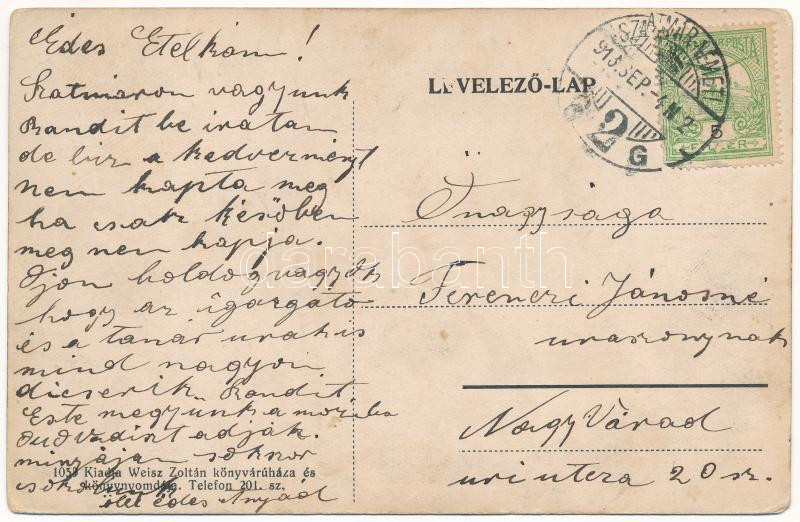 Édes Etelkám!
Szatmáron vagyunk
Bandit be iratam
de biz a kedvezményt
nem kapta meg
ha csak később
meg nem kapja.
Ojan boldog vagyok
hogy az igazgató
és a tanár urak is
mind nagyon
dicserik Bandit
Este megyunk a moziba
adják.
sokszor
ölel édes Anyád
1059 Kiadja Weisz Zoltán könyvárúháza és
könyvnyomdája. Telefon 201. sz.
LEVELEZŐ-LAP
SZATMÁR-NÉMETI
913 SEP
2 G
Őnagysága
Ferenczi Jánosné
uraszonynak
Nagy Várad
uri utcza 20 sz.
darabanth.com